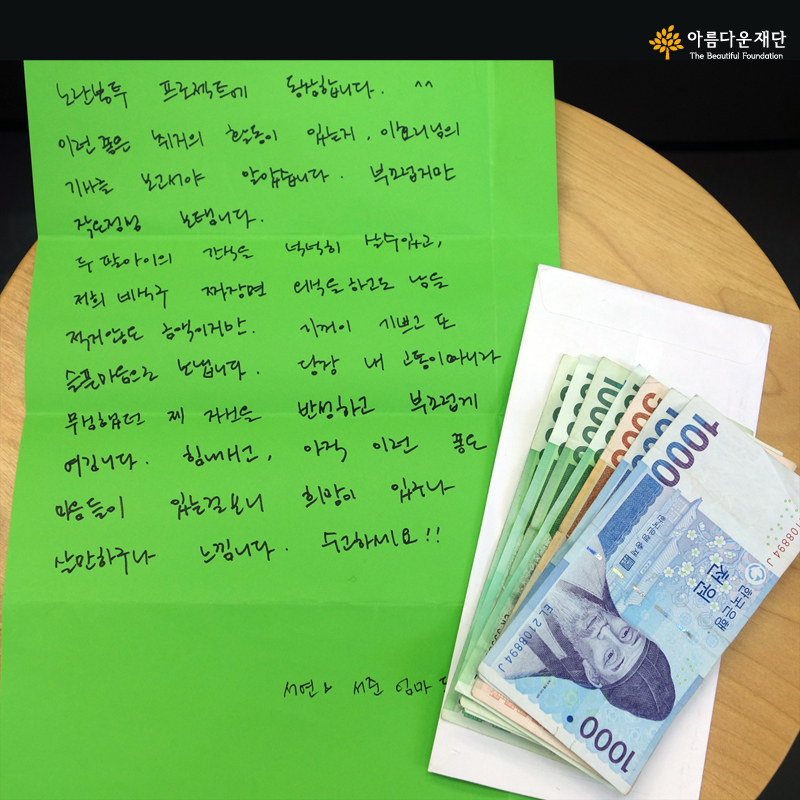 아름다운재단
The Beautiful Foundation
노란봉투 프로젝트에 동참합니다. ^^
이런 좋은 취지의 활동이 있는지, 이효리님의
기사를 보고서야 알았습니다. 부끄럽지만
작은정성 보탭니다.
두 딸아이의 간식을 넉넉히 살수있고,
저희 네식구 짜장면 외식을 하고도 남을
적지않은 금액이지만. 기꺼이 기쁘고 또
슬픈마음으로 보냅니다. 당장 내 고통이아니라
무심했던 제 자신을 반성하고 부끄럽게
여깁니다. 힘내시고, 아직 이런 좋은
마음들이 있는걸보니 희망이 있구나
살만하구나 느낍니다. 수고하세요!!
서연 서준 엄마
1000
5000
1000
1000
한국은행 총재
천원
한국은행
EL 2108894 J
1000